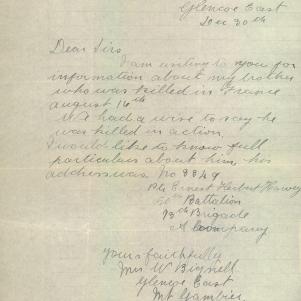 Glencoe East
Dec 30th
Dear Sirs
I am writing to you for
information about my brother
who was killed in France
august 16th
We had a wire to say he
was killed in action
I would like to know full
particulars about him, his
address was No 8849
Pte Ernest Herbert Harvey
50th Battalion
13th Brigade
A Company
yours faithfully
Mrs W Bignell
Glencoe East
Mt Gambier